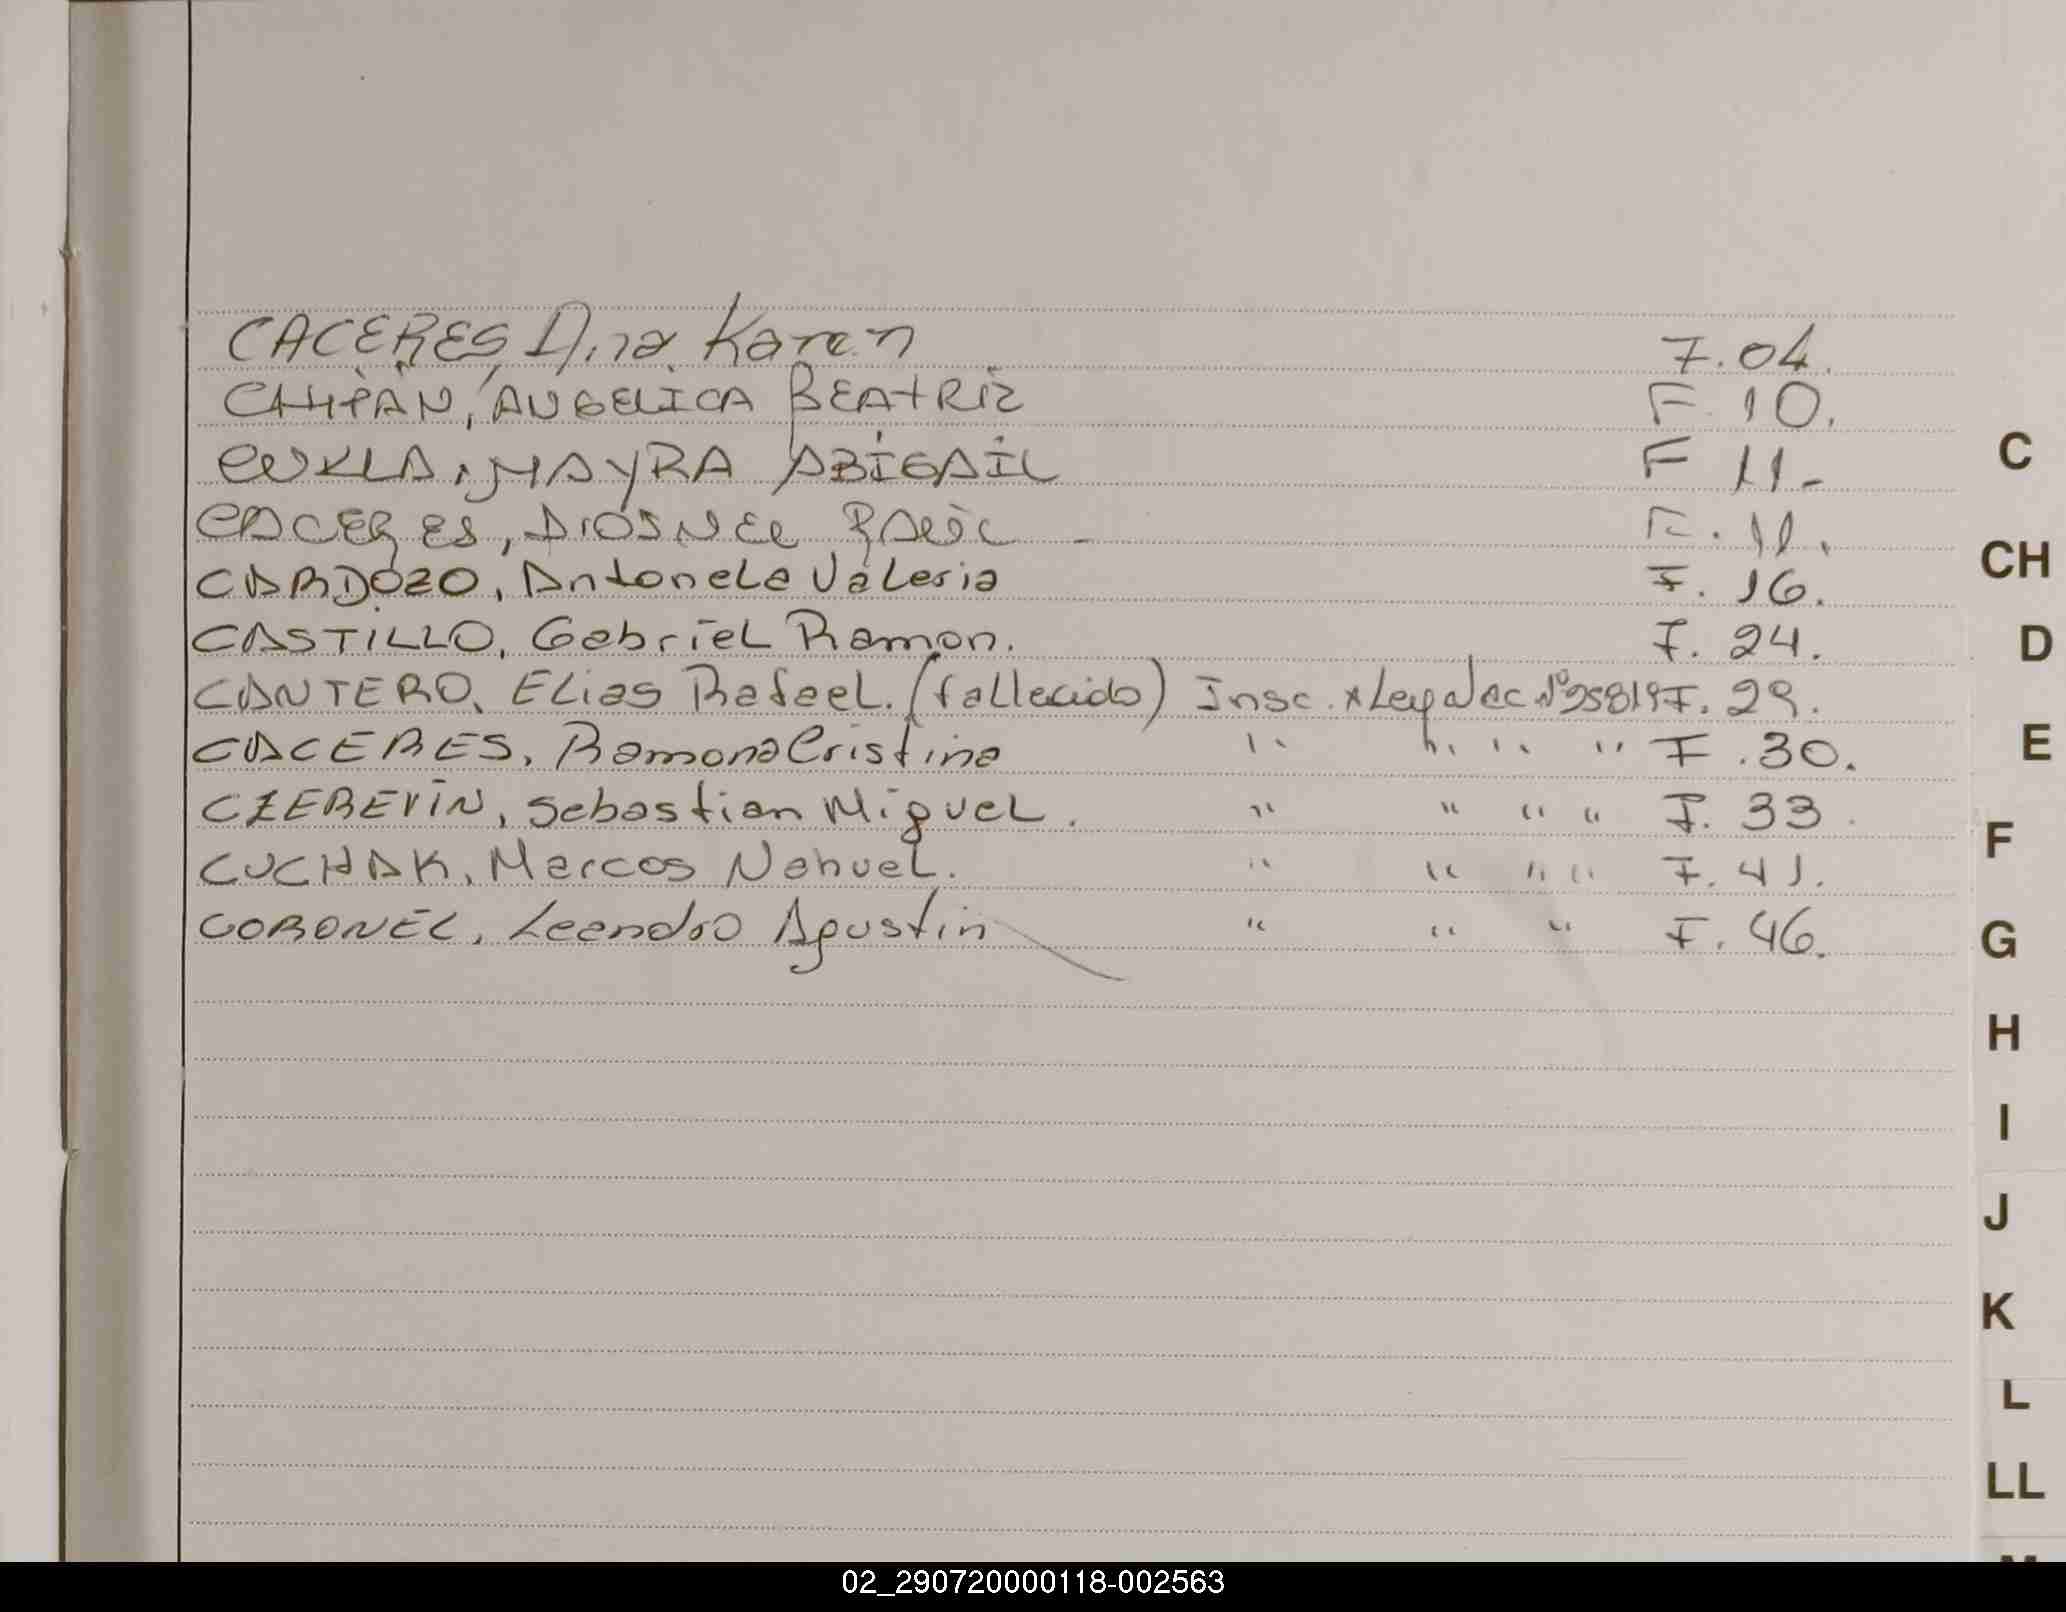 CACERES, Dina Karen F. 04.
CHIPÀN, ANGELICA BEATRIZ F. 10.
CUKLA, MAYRA ABIGAIL F 11-
CACERES, DIOSNEL RAÚL - F. 11.
CARDOZO, Antonela Valeria F. 16.
CASTILLO, Gabriel Ramon. F. 24.
CANTERO, Elias Rafael. (fallecido) Insc. x Ley Nac Nº 25819 F. 29.
CACERES, Ramona Cristina " " " " F. 30.
CZEREVIN, Sebastian Miguel. " " " " F. 33.
CUCHAK, Marcos Nahuel. " " " " F. 41.
CORONEL, Leandro Agustin " " " F. 46.
C
CH
D
E
F
G
H
I
J
K
L
LL
02_290720000118-002563